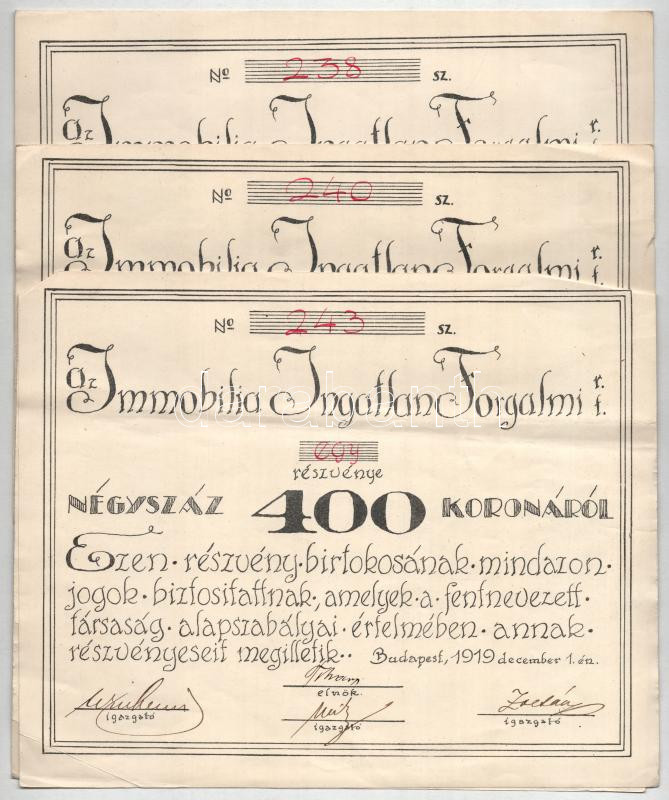 Nº 238 sz.
Az Immobilia Ingatlan Forgalmi r.
Nº 240 sz.
Az Immobilia Ingatlan Forgalmi r. t.
Nº 243 sz.
Az Immobilia Ingatlan Forgalmi r. t.
egy
részvénye
NÉGYSZÁZ 400 KORONÁRÓL
Ezen · részvény · birtokosának · mindazon ·
jogok · biztosittattnak, amelyek · a · fentnevezett ·
társaság · alapszabályai · értelmében · annak ·
részvényeseit megilletik · · Budapest, 1919 december 1. én.
elnök.
igazgató igazgató igazgató
darabanth